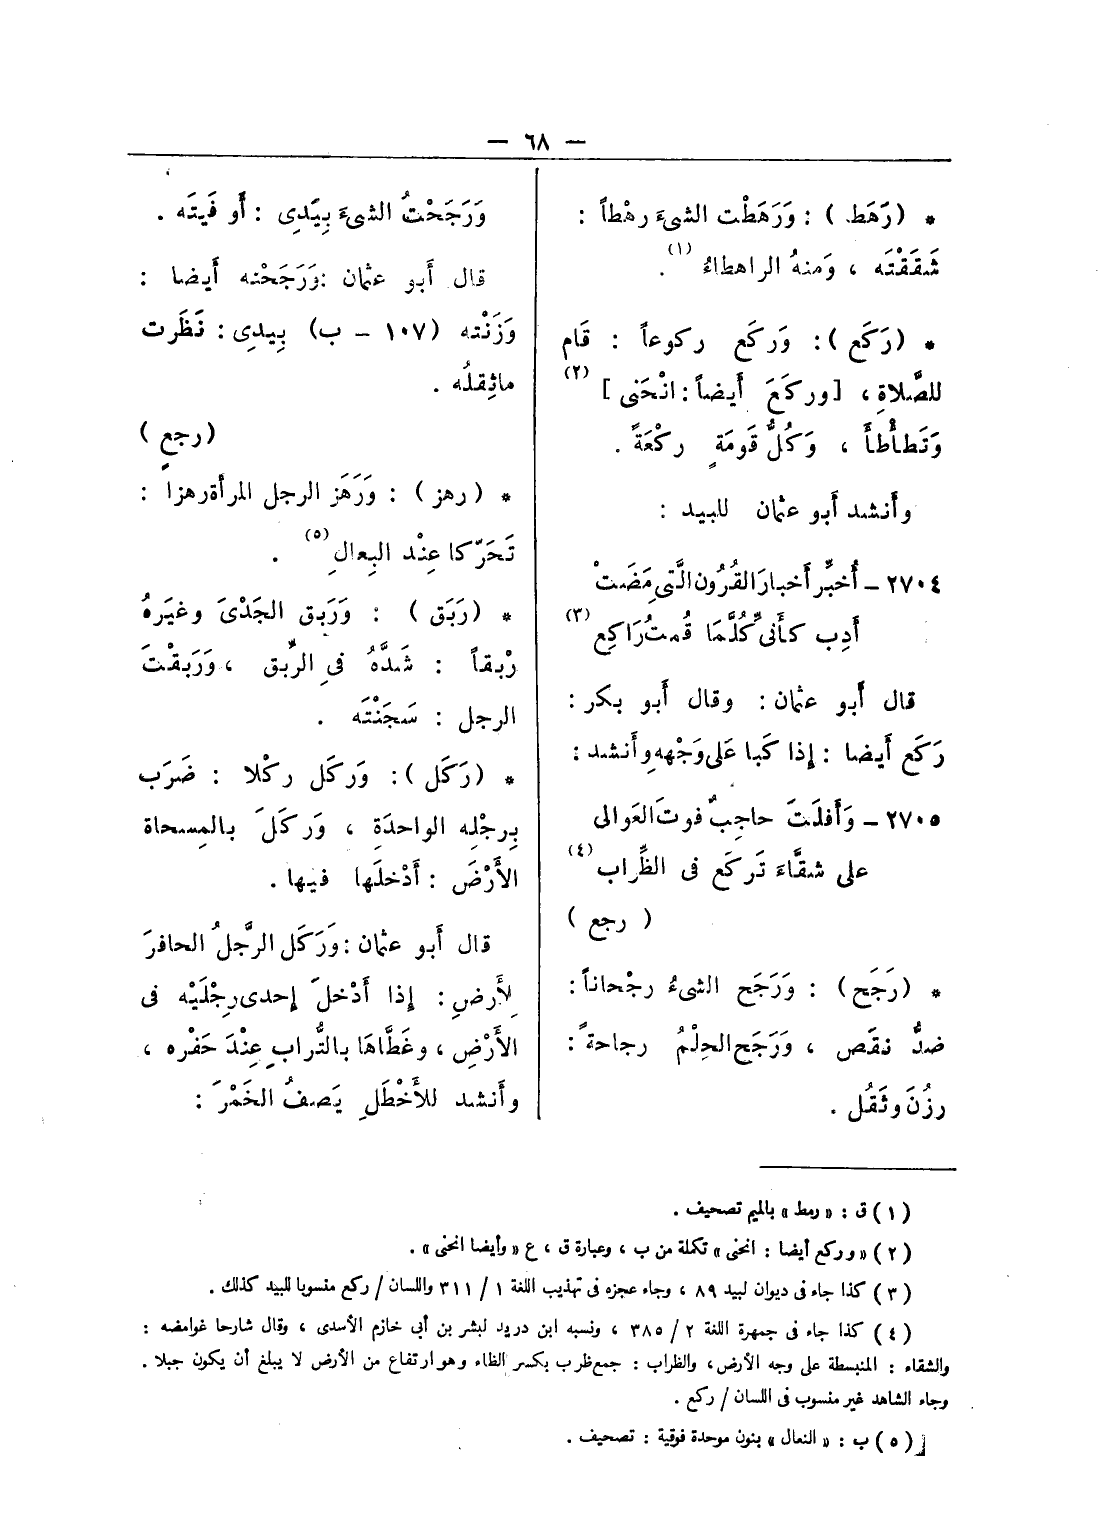 — ٦٨ —
* (رَهَط ) : وَرَهَطْت الشىءَ رهْطاً :
شَقَقْتَه ، وَمنهُ الراهطاءُ (١).
* (رَكَع ): وَركَع ركوعاً : قَام
للصَّلاةِ ، [وركَعَ أَيضاً : انْحَنى ] (٢)
وَتَطأْطأَ ، وَكُلُّ قَومَةٍ ركْعَةً .
وأَنشد أَبو عثمان للبيد :
٢٧٠٤ – أُخبِّر أَخبارَ القُرُون الَّتى مَضَتْ
أَدِب كأَنىِّ كُلَّمَا قُمتُ رَاكِع (٣)
قال أَبو عثمان : وقال أَبو بكر :
رَكَع أَيضا : إِذا كَبا عَلى وَجْههِ وأَنشد :
٢٧٠٥ – وَأَفلَتَ حاجِبٌ فوتَ العَوالى
على شقَّاءَ تَركَع فى الظِّراب (٤)
( رجع )
* (رَجَح) : وَرَجَح الشىءُ رجْحاناً :
ضدُّ نقَص ، وَرَجَح الحِلْمُ رجاحةً :
رزُنَ وثَقُل .
وَرَجَحْتُ الشىءَ بِيَدِى : أَو فَيتَه .
قال أَبو عثمان :وَرَجَحْته أَيضا :
وَزَنْته (١٠٧ – ب) بِيدِى : نَظَرت
ماثِقلُه .
(رجع )
* (رهز ) : وَرَهَز الرجل المرأة رهزا :
تَحَرّكا عِنْد البِعالِ (٥) .
* (رَبَق ) : وَرَبق الجَدْىَ وغيَرهُ
رْبقاً : شَدَّهُ فىِ الرِّبق ، وَرَبقْتَ
الرجل : سَجَنْتَه .
* (رَكَل ): وَركَل ركْلا : ضَرَب
بِرجْلِه الواحدَةِ ، وَركَلَ بالمِسحاة
الأَرْضَ : أَدْخلَها فيها .
قال أَبو عثمان : وَرَكَل الرجَّلُ الحافرَ
لأَرضِ : إِذا أَدْخلَ إِحدى رِجْلَيْه فى
الأَرْضِ ، وغَطَّاهَا بالتُّرابِ عِنْدَ حَفْره ،
وأَنشد للأَخْطَلِ يَصفُ الخَمْرَ :
(١) ق : «رمط» بالميم تصحيف .
(٢) «وركع أيضا : انحنى» تكملة من ب ، وعبارة ق ، ع «وأيضا انحنى» .
(٣) كذا جاء فى ديوان لبيد ٨٩ ، وجاء عجزه فى تهذيب اللغة ١ / ٣١١ واللسان / ركع منسوبا للبيد كذلك .
(٤) كذا جاء فى جمهرة اللغة ٢ / ٣٨٥ ، ونسبه ابن دريد لبشر بن أبى خازم الأسدى ، وقال شارحا غوامضه :
والشقاء : المنبسطة على وجه الأرض، والظراب : جمع ظرب بكسر الظاء وهو ارتفاع من الأرض لا يبلغ أن يكون جبلا .
وجاء الشاهد غير منسوب فى اللسان / ركع .
(٥) ب : «النعال» بنون موحدة فوقية : تصحيف .